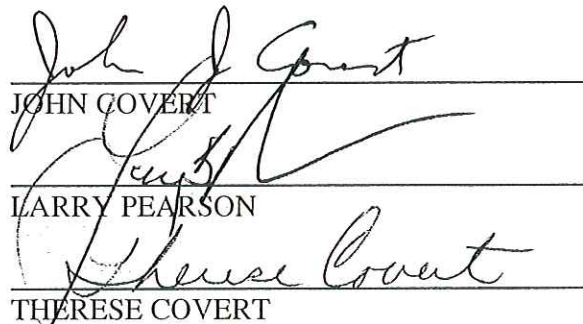 John J Covert
JOHN COVERT
LARRY PEARSON
Therese Covert
THERESE COVERT